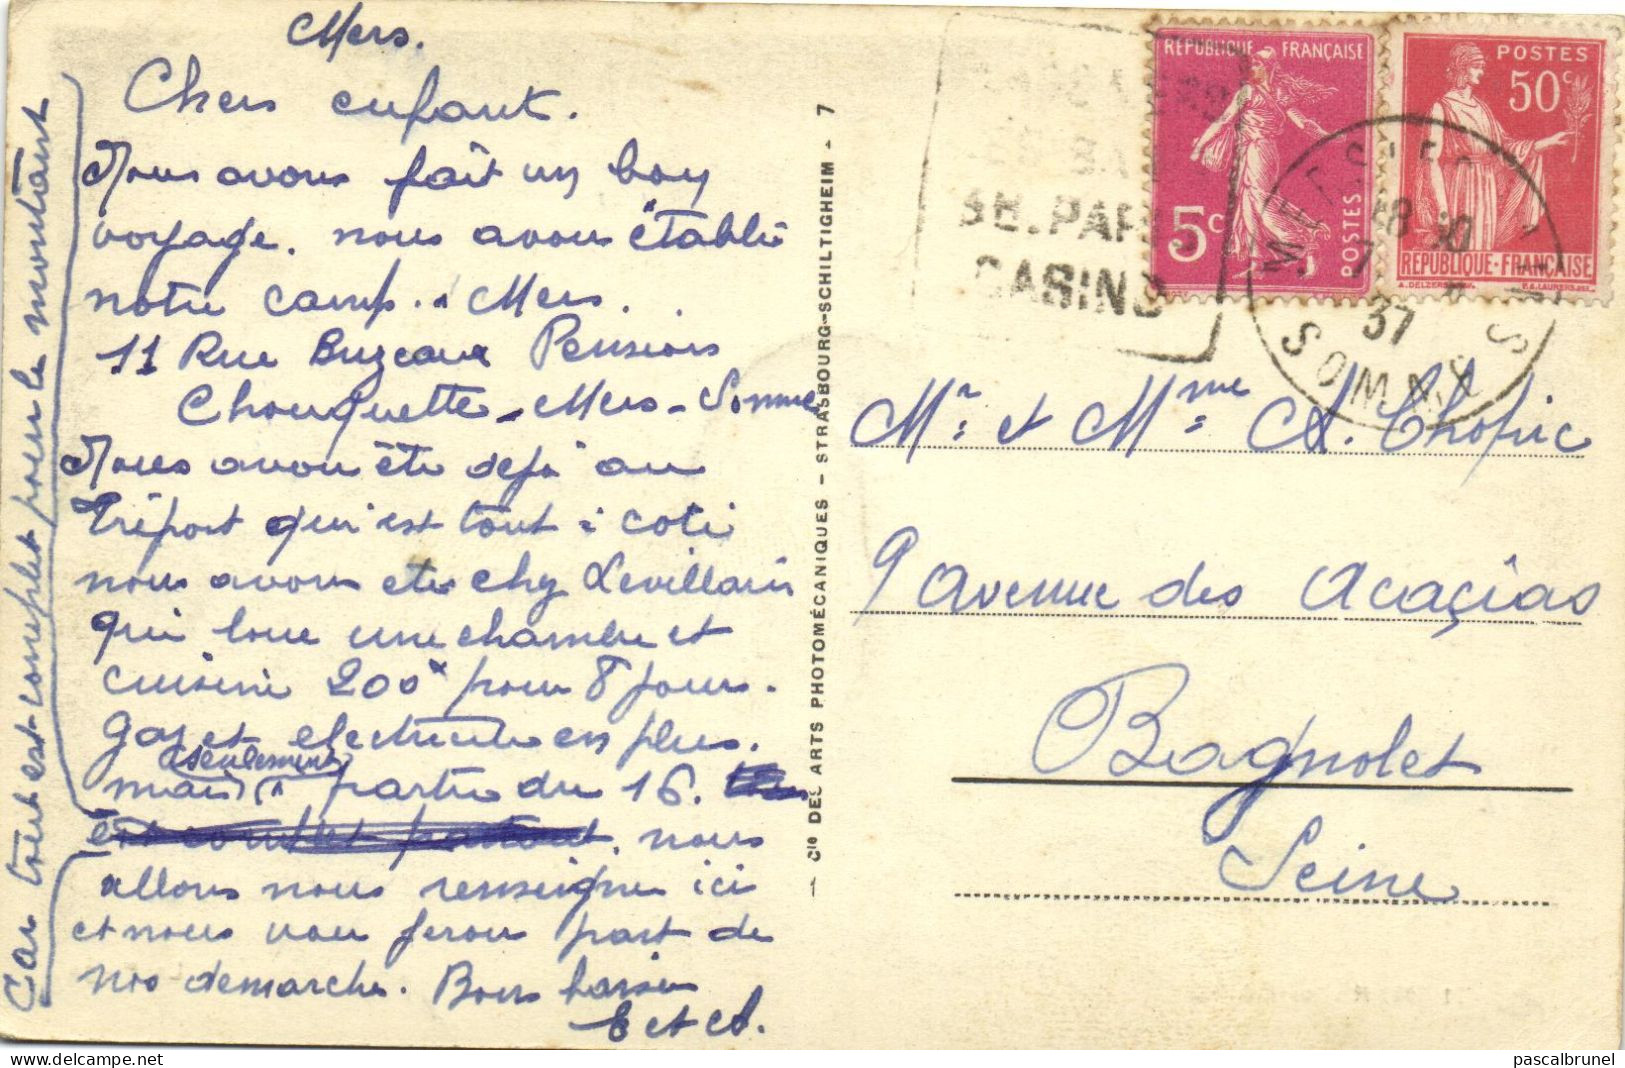 Mers.
Chers enfant.
Nous avons fait un bon
voyage. nous avons établi
notre camp. a Mers.
11 Rue Buzeaux Pension
Chouquette - Mers - Somme
Nous avon été deja au
Tréport qui est tout à coté
nous avons ete chez Levillain
qui loue une chambre et
cuisine 200 pour 8 jours.
gaz et electricite en plus.
seulement
mais a partir du 16.
nous
allons nous renseigne ici
et nous vou feron part de
nos demarche. Bons baisers
E et A.
Car tout est complet pour le montant
- Cie DES ARTS PHOTOMÉCANIQUES - STRASBOURG-SCHILTIGHEIM - 7
SES BAINS
SE. PARC
CASINO
RÉPUBLIQUE FRANÇAISE
5c
POSTES
POSTES
50c
RÉPUBLIQUE-FRANÇAISE
MERS LES BAINS
18 30
7
37
SOMME
Mr et Mme A. Chopic
9 Avenue des Acaçias
Bagnolet
Seine
pascalbrunel